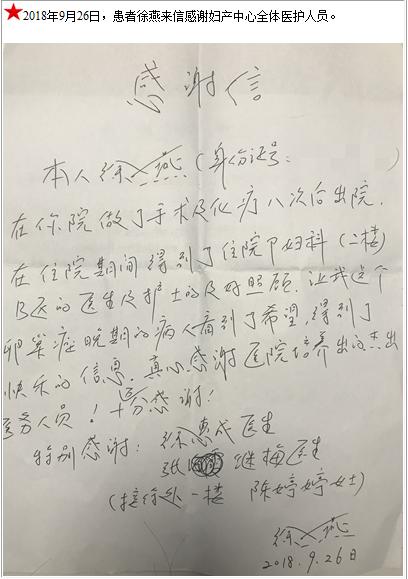 ★2018年9月26日，患者徐燕来信感谢妇产中心全体医护人员。
感谢信
本人徐燕(身份证号：)
在你院做了手术及化疗八次后出院.
在住院期间得到了住院P妇科(二楼)
B区的医生及护士的及好照顾.让我这个
卵巢癌晚期的病人看到了希望,得到了
快乐的信息.真心感谢医院培养出的杰出
医务人员！十分感谢！
特别感谢：徐惠成医生
张继梅医生
(接待处一楼 陈婷婷女士)
徐燕
2018.9.26日